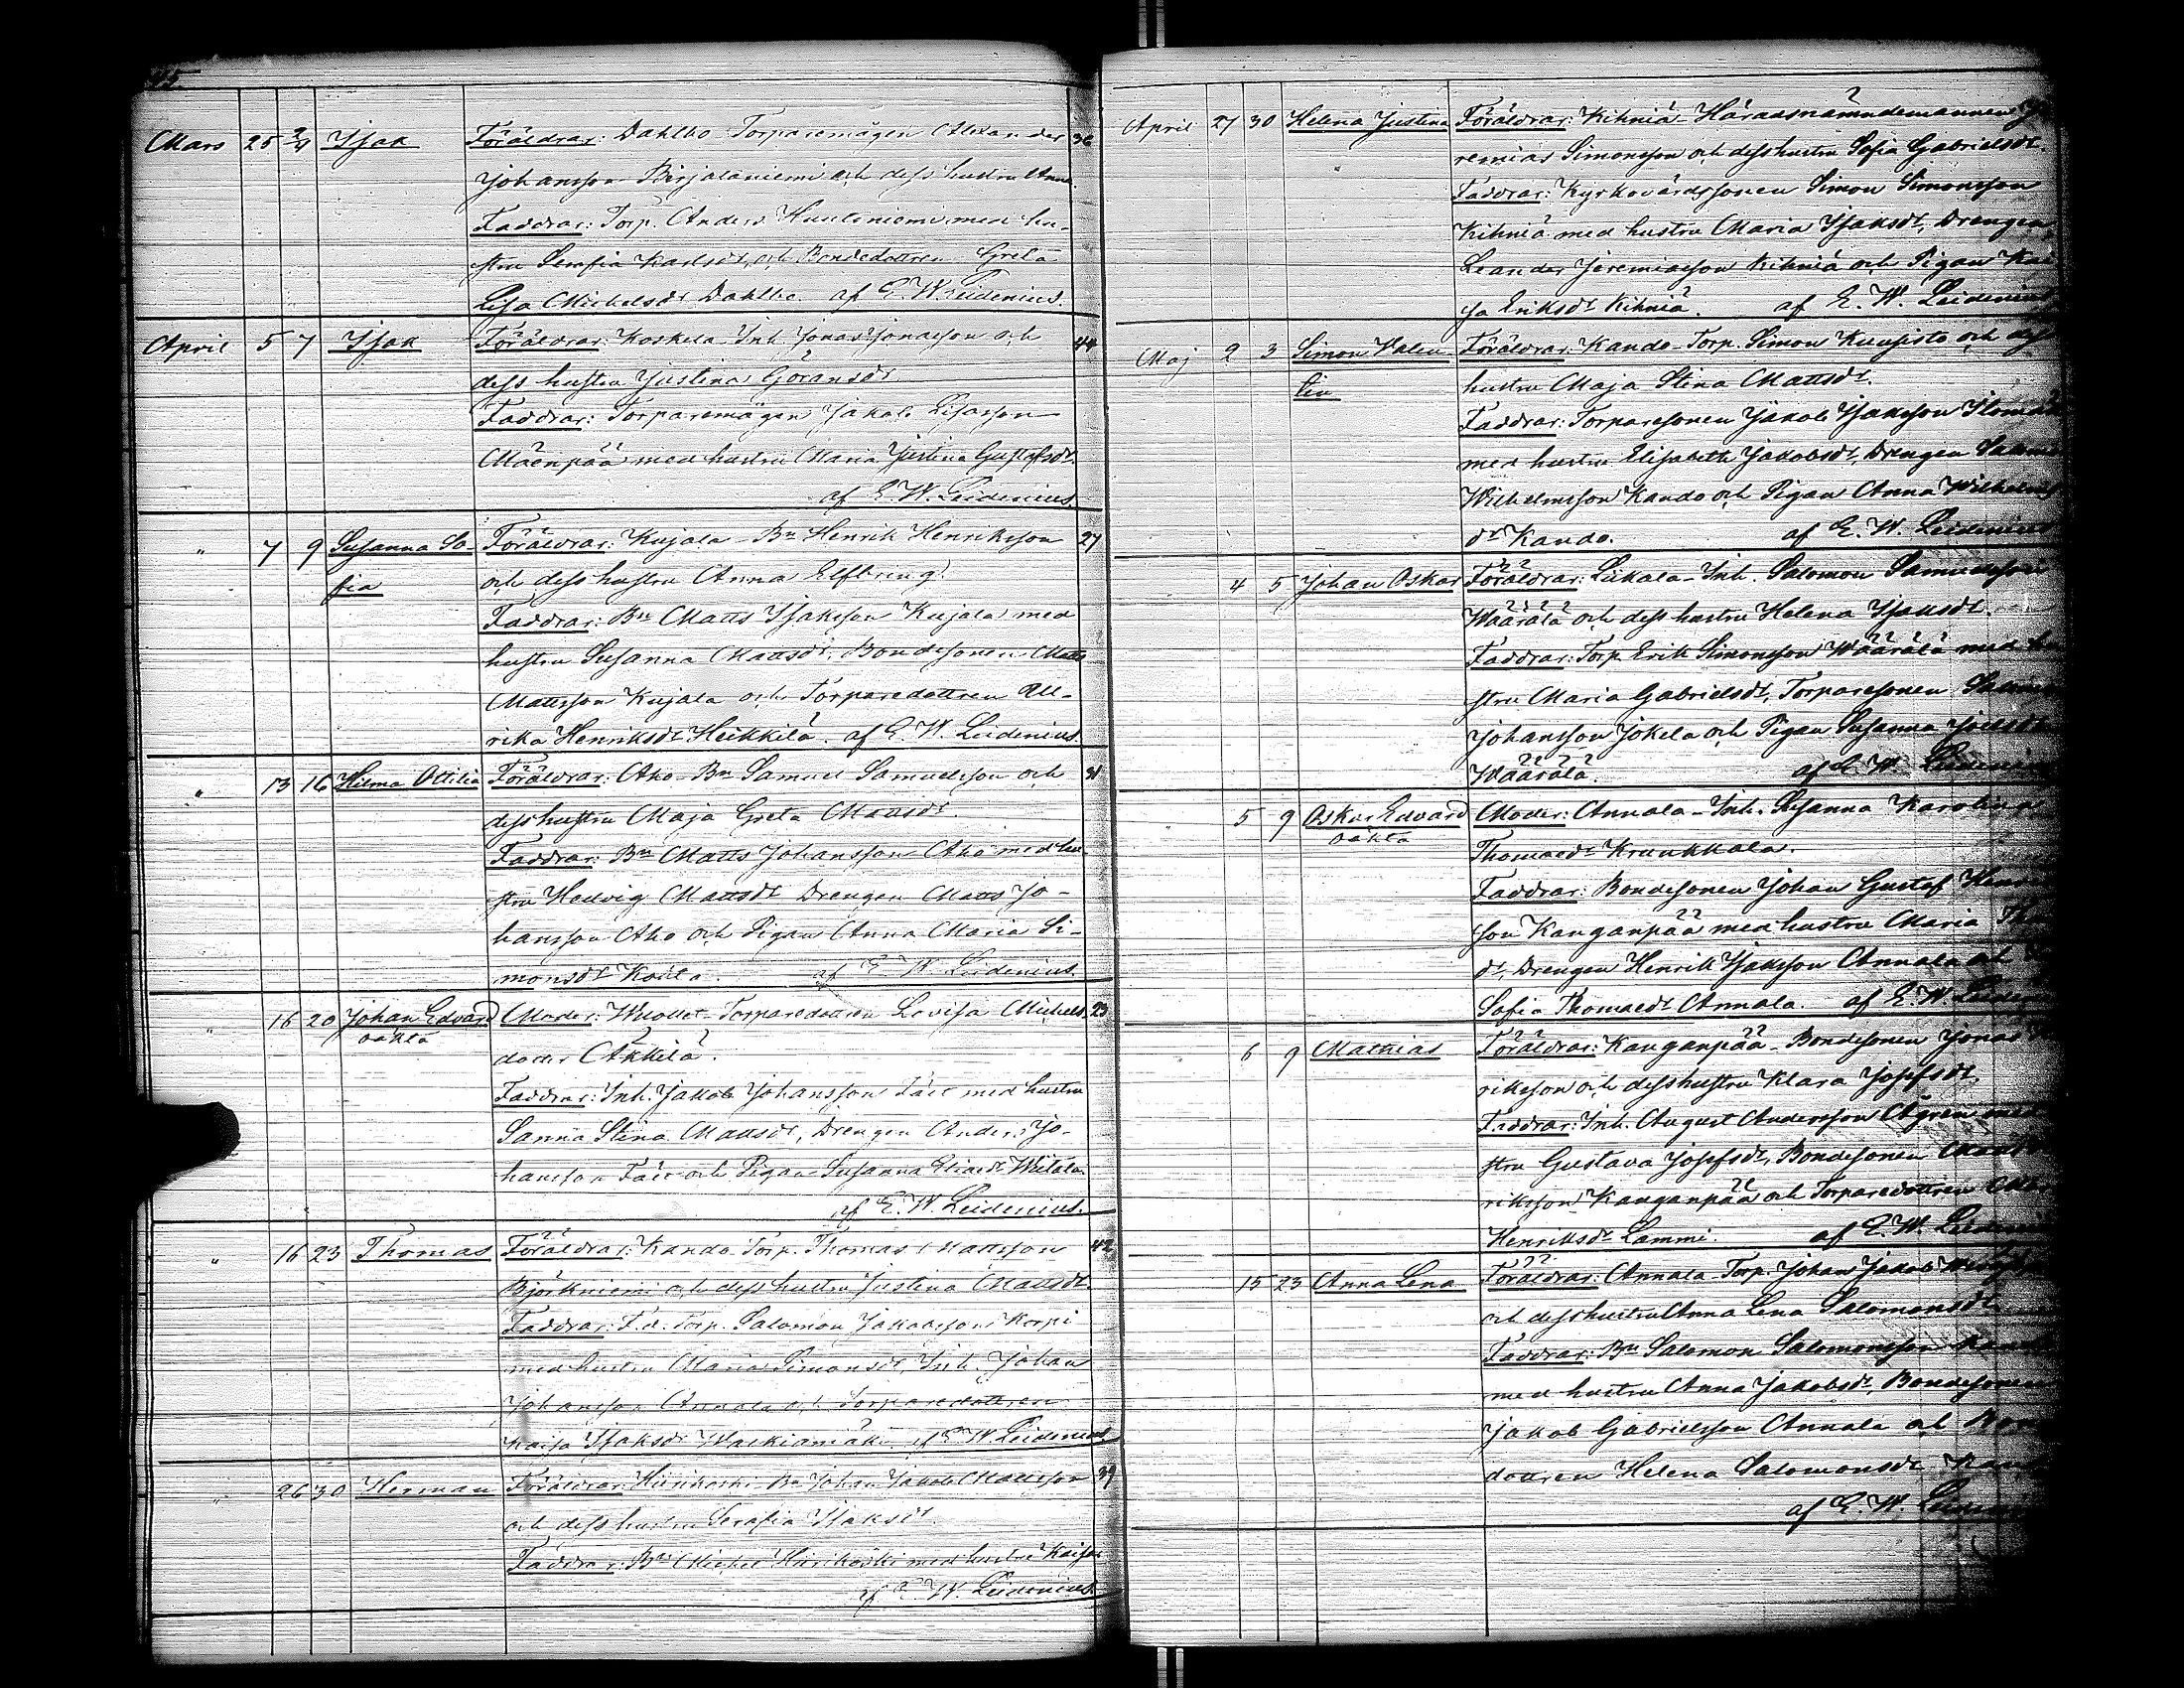 45.
Mars 25 2/4 Isak Föräldrar: Dahlbo Torparemågen Alexander 36
Johansson Pirjolaniemi och dess hustru Anna.
Faddrar: Torp. Anders Kuuliniemi med hu-
stru Serafia Karlsdr, och Bondedottren Greta
Lisa Michelsdr Dahlbo. af E. W. Leidenius.
April 5 7 Isak Föräldrar: Koskela Inh. Jonas Jonasson och 44
dess hustru Justina Göransdr.
Faddrar: Torparemågen Jakob
Mäenpää med hustru Maria Justina Gustafsdr.
af E. W. Leidenius.
" 7 9 Susanna So- Föräldrar: Kujala Bn Henrik Henriksson 27
fia och dess hustru Anna Elfbring.
Faddrar: Bn Matts Isaksson Kujala med
hustru Susanna Mattsdr, Bondesonen Matts
Mattsson Kujala och Torparedottren Ul-
rika Henriksdr Heikkilä. af E. W. Leidenius.
" 13 16 Hilma Ottilia Föräldrar: Aho Bn Samuel Samuelsson och 31
dess hustru Maja Greta Mattsdr.
Faddrar: Bn Matts Johansson Aho med hu-
stru Hedvig Mattsdr Drengen Matts Jo-
hansson Aho och Pigan Anna Maria Si-
monsdr Koita. af E. W. Leidenius.
" 16 20 Johan Edvard Moder: Torparedottren Lovisa Michels- 23
oäkta doter Ånkilä.
Faddrar: Inh. Jakob Johansson Fäir med hustru
Sanna Stina Mattsdr, Drengen Anders Jo-
hansson Fäir och Pigan Susanna Eliaedr
af E. W. Leidenius.
" 16 23 Thomas Föräldrar: Kando Torp. Thomas Mattsson 42
Björkniemi och dess hustru Justina Mattsdr.
Faddrar: F.d. Torp. Salomon Jakobsson Korpi
med hustru Maria Simonsdr, Inh. Johan
Johansson Annala och Torparedottren
Kaisa Isaksdr af E. W. Leidenius
" 26 30 Herman Föräldrar: Hirvikoski Bn Johan Jakob Mattsson 39
och dess hustru Serafia Isaksdr.
Faddrar: Bn Michel Hirvikoski med hustru Kaisa
af E. W. Leidenius.
April 27 30 Helena Justina Föräldrar: Kihniä Häradsnämndemannen Je
remias Simonsson och dess hustru Sofia Gabrielsdr.
Faddrar: Kyrkovärdssonen Simon Simonsson
Kihniä med hustru Maria Isaksdr, Drengen
Leander Jeremiasson Kihniä och Pigan Kai
sa Eriksdr Kihniä. af E. W. Leidenius
Maj 2 3 Simon Valen Föräldrar: Kando Torp. Simon Kuusisto och dess
tin hustru Maja Stina Mattsdr.
Faddrar: Torparesonen Jakob Isaksson
med hustru Elisabeth Jakobsdr, Drengen
Wilhelmsson Kando och Pigan Anna Wilhelms
dr Kando. af E. W. Leidenius
4 5 Johan Oskar Föräldrar: Liikala Inh. Salomon Samuelsson
Wäärälä och dess hustru Helena Isaksdr.
Faddrar: Torp. Erik Simonsson Wäärälä med hu
stru Maria Gabrielsdr, Torparesonen
Johansson Jokela och Pigan Susanna Joelsdr
Wäärälä. af E. W. Leidenius
5 9 Oskar Edvard Moder: Annala Inh. Susanna Karolina
oäkta Thomaedr Kruukkala.
Faddrar: Bondesonen Johan Gustaf Henrik
sson Kanganpää med hustru Maria
dr, Drengen Henrik Isaksson Annala och
Sofia Thomaedr Annala af E. W. Leidenius
6 9 Mathias Föräldrar: Kanganpää Bondesonen Jonas
riksson och dess hustru Klara Josefsdr,
Faddrar: Inh. August Andersson Ågren med
stru Gustava Josefsdr, Bondesonen
riksson Kanganpää och Torparedottren
Henriksdr Lammi. af E. W. Leidenius
15 23 Anna Lena Föräldrar: Annala Torp. Johan Jakob
och dess hustru Anna Lena Salomonsdr
Faddrar: Bn Salomon Salomonsson
med hustru Anna Jakobsdr, Bondesonen
Jakob Gabrielsson Annala och
dottren Helena Salomonsdr
af E. W. Leidenius